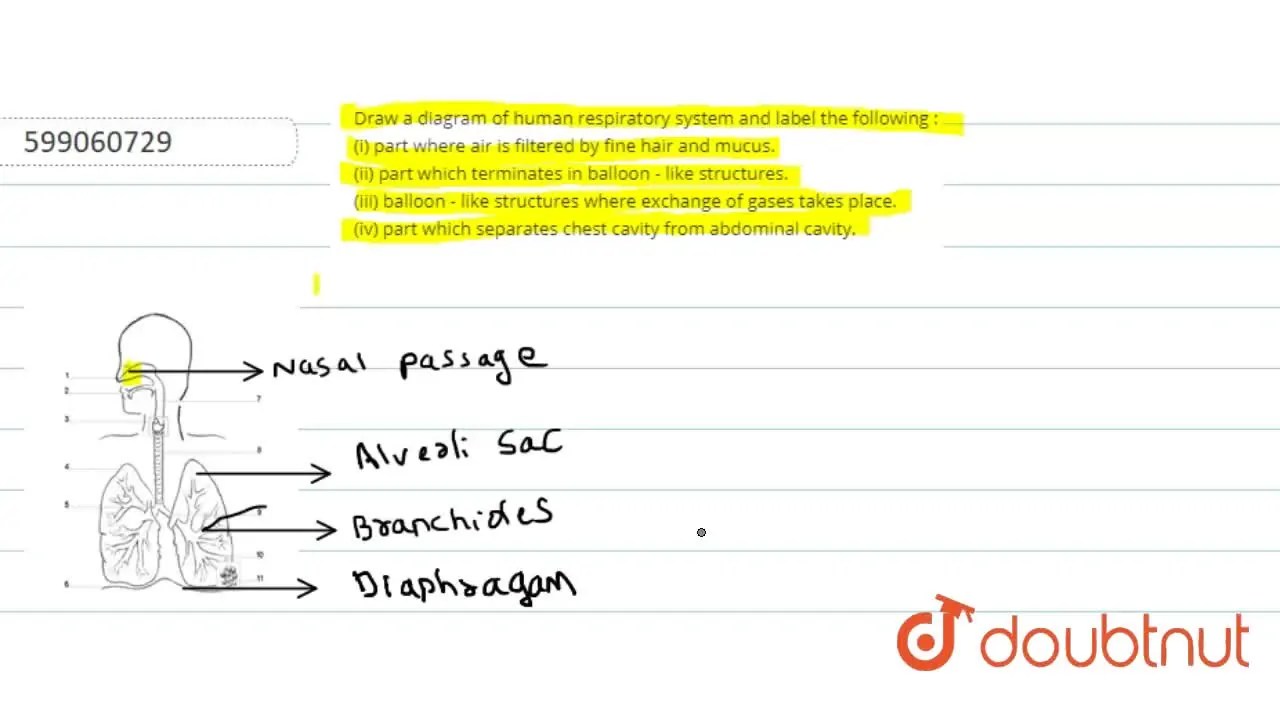 599060729
Draw a diagram of human respiratory system and label the following :
(i) part where air is filtered by fine hair and mucus.
(ii) part which terminates in balloon - like structures.
(iii) balloon - like structures where exchange of gases takes place.
(iv) part which separates chest cavity from abdominal cavity.
Nasal passage
1
2
7
3
Alveoli Sac
8
4
5
Branchides
9
10
11
6
Diaphragam
doubtnut